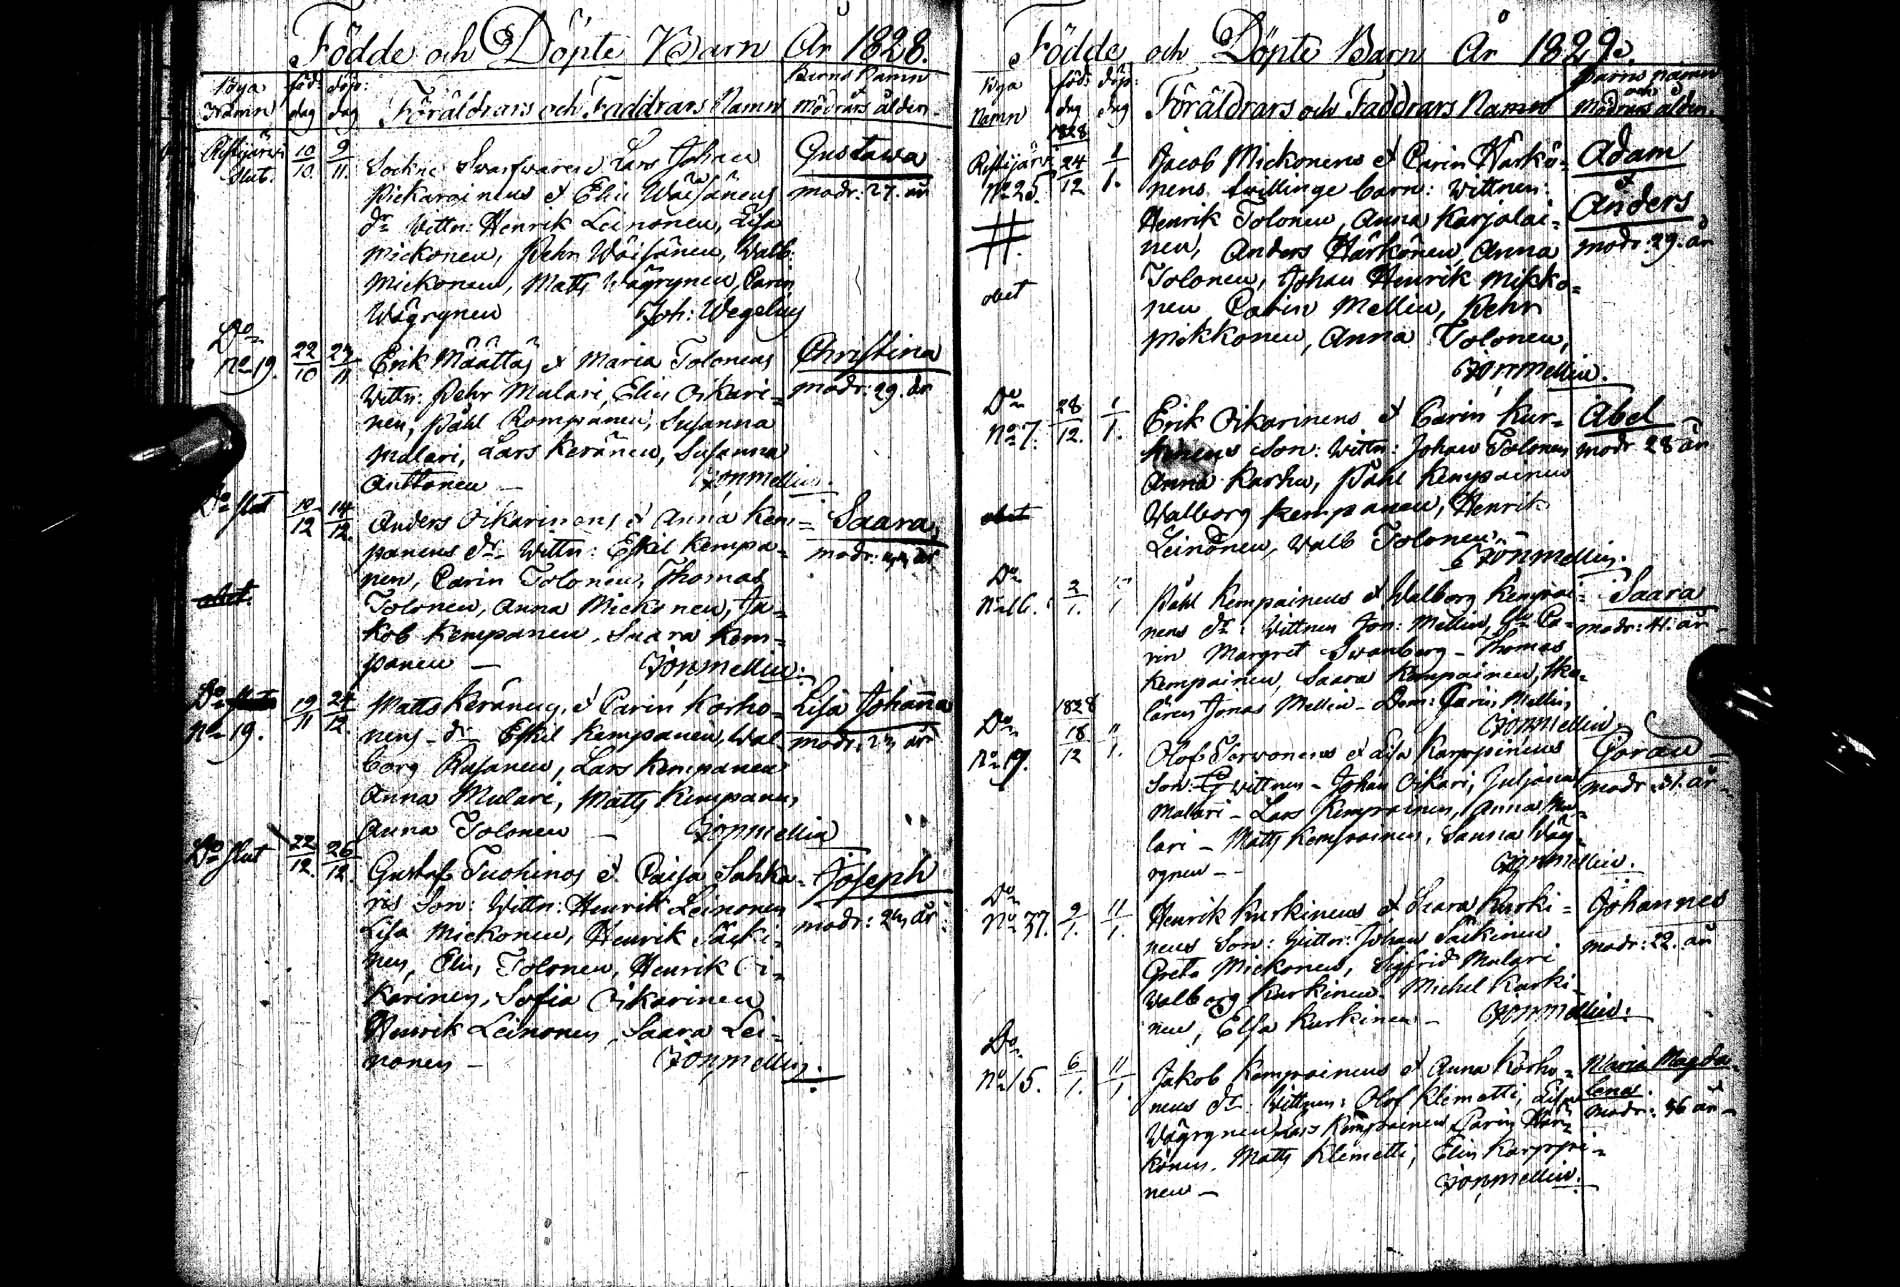 Födde och Döpte Barn År 1828.
Bya Namn
föd: dag
döp: dag
Föräldrars och Faddrars Namn
Barns Namn & Mödrars ålder.
Ristijärvi
slut.
10/10.
9/11.
Sockne Swarfwaren Lars Johan
Pickarainens & Elin Wäisänens
dr Wittn: Henrik Leinonen, Lisa
Mickonen, Pehr Wäisänen, Walb:
Mickonen, Matts Wäyrynen, Carin
Wäyrynen Joh: Wegelius
Gustawa
modr: 27. år
Do
No 19.
22/10
23/11
Erik Määttäs & Maria Tolonens
Wittn: Pehr Mulari, Elin Oikari=
nen, Påhl Rompanen, Susanna
Mulari, Lars Keränen, Susanna
Anttonen — Jonmellin.
Christina
modr: 29. år
Do slut
10/12
14/12.
Anders Oikarinens & Anna Kem=
panens dr. Wittn: Eskil Kempa=
nen, Carin Tolonen, Thomas
Tolonen, Anna Mickonen, Ja=
kob Kempanen, Saara Kem=
panen — Jonmellin.
Saara,
obiit.
Do
No 19.
19/11
24/12.
Matts Keränens & Carin Korho=
nens dr Eskil Kempanen, Wal=
borg Rusanen, Lars Kempanen
Anna Mulari, Matts Kempanen,
Anna Tolonen — Jonmellin
Lisa Johanna
modr: 27 år
Do slut
22/12.
26/12.
Gustaf Tuohinos & Caisa Sahka=
ris Son: Wittn: Henrik Leinonen
Lisa Mickonen, Henrik Säcki=
nen, Elin Tolonen, Henrik Oi=
karinen, Sofia Oikarinen
Henrik Leinonen, Saara Lei=
nonen — Jonmellin.
Joseph
modr: 27 år.
Födde och Döpte Barn År 1829.
Bya Namn
föd: dag
döp: dag
Föräldrars och Faddrars Namn
Barns namn och Mödrars ålder.
1828
Ristijärvi
No 25.
24/12
1/1.
Jacob Mickonens & Carin Härkö=
nens twillinge barn: Wittnen:
Henrik Tolonen, Anna Karjalai=
nen, Anders Härkönen, Anna
Tolonen, Johan Henrik Mikko=
nen Carin Mellin, Pehr
Mikkonen, Anna Tolonen,
Jonmellin.
Adam
&
Anders
modr: 29. år
obiit
Do
No 7.
28/12.
1/1.
Erik Oikarinens & Carin Kur=
kinens Son: Wittn: Johan Tolonen
Anna Karhu, Påhl Kempainen
Walborg Kempanen, Henrik
Leinonen, Walb Tolonen —
Jonmellin.
Abel
modr 28 år
obiit
Do
No 16.
2/1.
Påhl Kempainens & Walborg Kempai=
nens dr: Wittnen Jon: Mellin, Ca=
rin Margret Swanberg — Thomas
Kempainen, Saara Kempainen, Ska=
laren Jonas Mellin — Dem: Carin Mellin,
Jonmellin.
Saara
modr: 41. år
1828
Do
No 19.
18/12
11/1.
Olof Torvonens & Lisa Karppinens
Son: Wittnen — Johan Oikari, Juliana
Mulari — Lars Kempainen, Anna Mu=
lari — Matts Kempainen, Sanna Wäy=
rynen — Jonmellin.
Göran
modr: 31. år
Do
No 37.
9/1.
11/1.
Henrik Kurkinens & Saara Kurki=
nens Son: Wittn: Johan Säckinen
Greta Mickonen, Sigfrid Mulari
Walborg Kurkinen. Michel Kurki=
nen, Elsa Kurkinen — Jonmellin.
Johannes
modr: 22. år
Do
No 15.
6/1.
11/1.
Jakob Kempainens & Anna Korho=
nens dr: Wittnen: Olof Klemetti, Lisa
Wäyrynen Lars Kempainen, Carin Här=
könen. Matts Klemetti, Elin Karppi=
nen — Jonmellin.
Maria Magda=
lena.
modr: 36 år